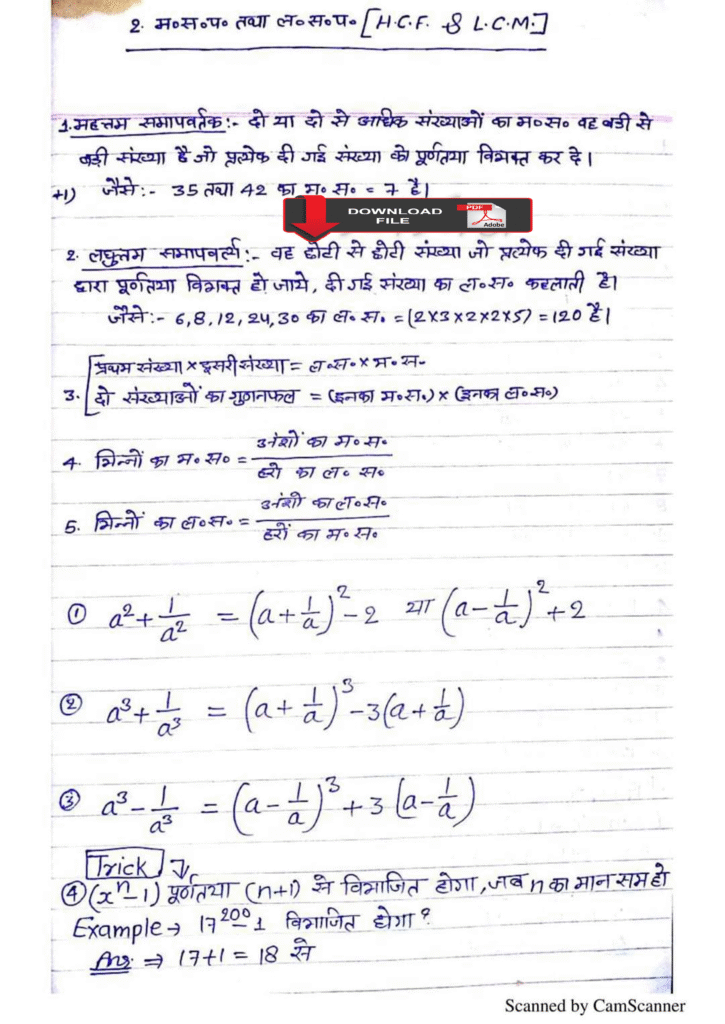 2. म०स०प० तथा ल०स०प० [H.C.F. & L.C.M.]
1. महत्तम समापवर्तक:- दो या दो से अधिक संख्याओं का म०स० वह बडी से
बडी संख्या है जो प्रत्येक दी गई संख्या को पूर्णतया विभक्त कर दे।
+1) जैसे:- 35 तथा 42 का म० स० = 7 है।
DOWNLOAD FILE PDF Adobe
2. लघुत्तम समापवर्त्य:- वह छोटी से छोटी संख्या जो प्रत्येक दी गई संख्या
द्वारा पूर्णतया विभक्त हो जाये, दी गई संख्या का ल०स० कहलाती है।
जैसे:- 6,8,12,24,30 का ल० स० = (2×3×2×2×5) = 120 है।
प्रथम संख्या × दूसरी संख्या = ल०स० × म० स०
3. दो संख्याओं का गुणनफल = (इनका म०स०) × (इनका ल०स०)
4. भिन्नों का म० स० = अंशों का म० स० / हरो का ल० स०
5. भिन्नों का ल०स० = अंशो का ल०स० / हरों का म० स०
① a² + 1/a² = (a + 1/a)² - 2 या (a - 1/a)² + 2
② a³ + 1/a³ = (a + 1/a)³ - 3(a + 1/a)
③ a³ - 1/a³ = (a - 1/a)³ + 3(a - 1/a)
Trick
④ (xⁿ - 1) पूर्णतया (n+1) से विभाजित होगा, जब n का मान सम हो
Example → 17²⁰⁰ - 1 विभाजित होगा?
Ans ⇒ 17+1 = 18 से
Scanned by CamScanner